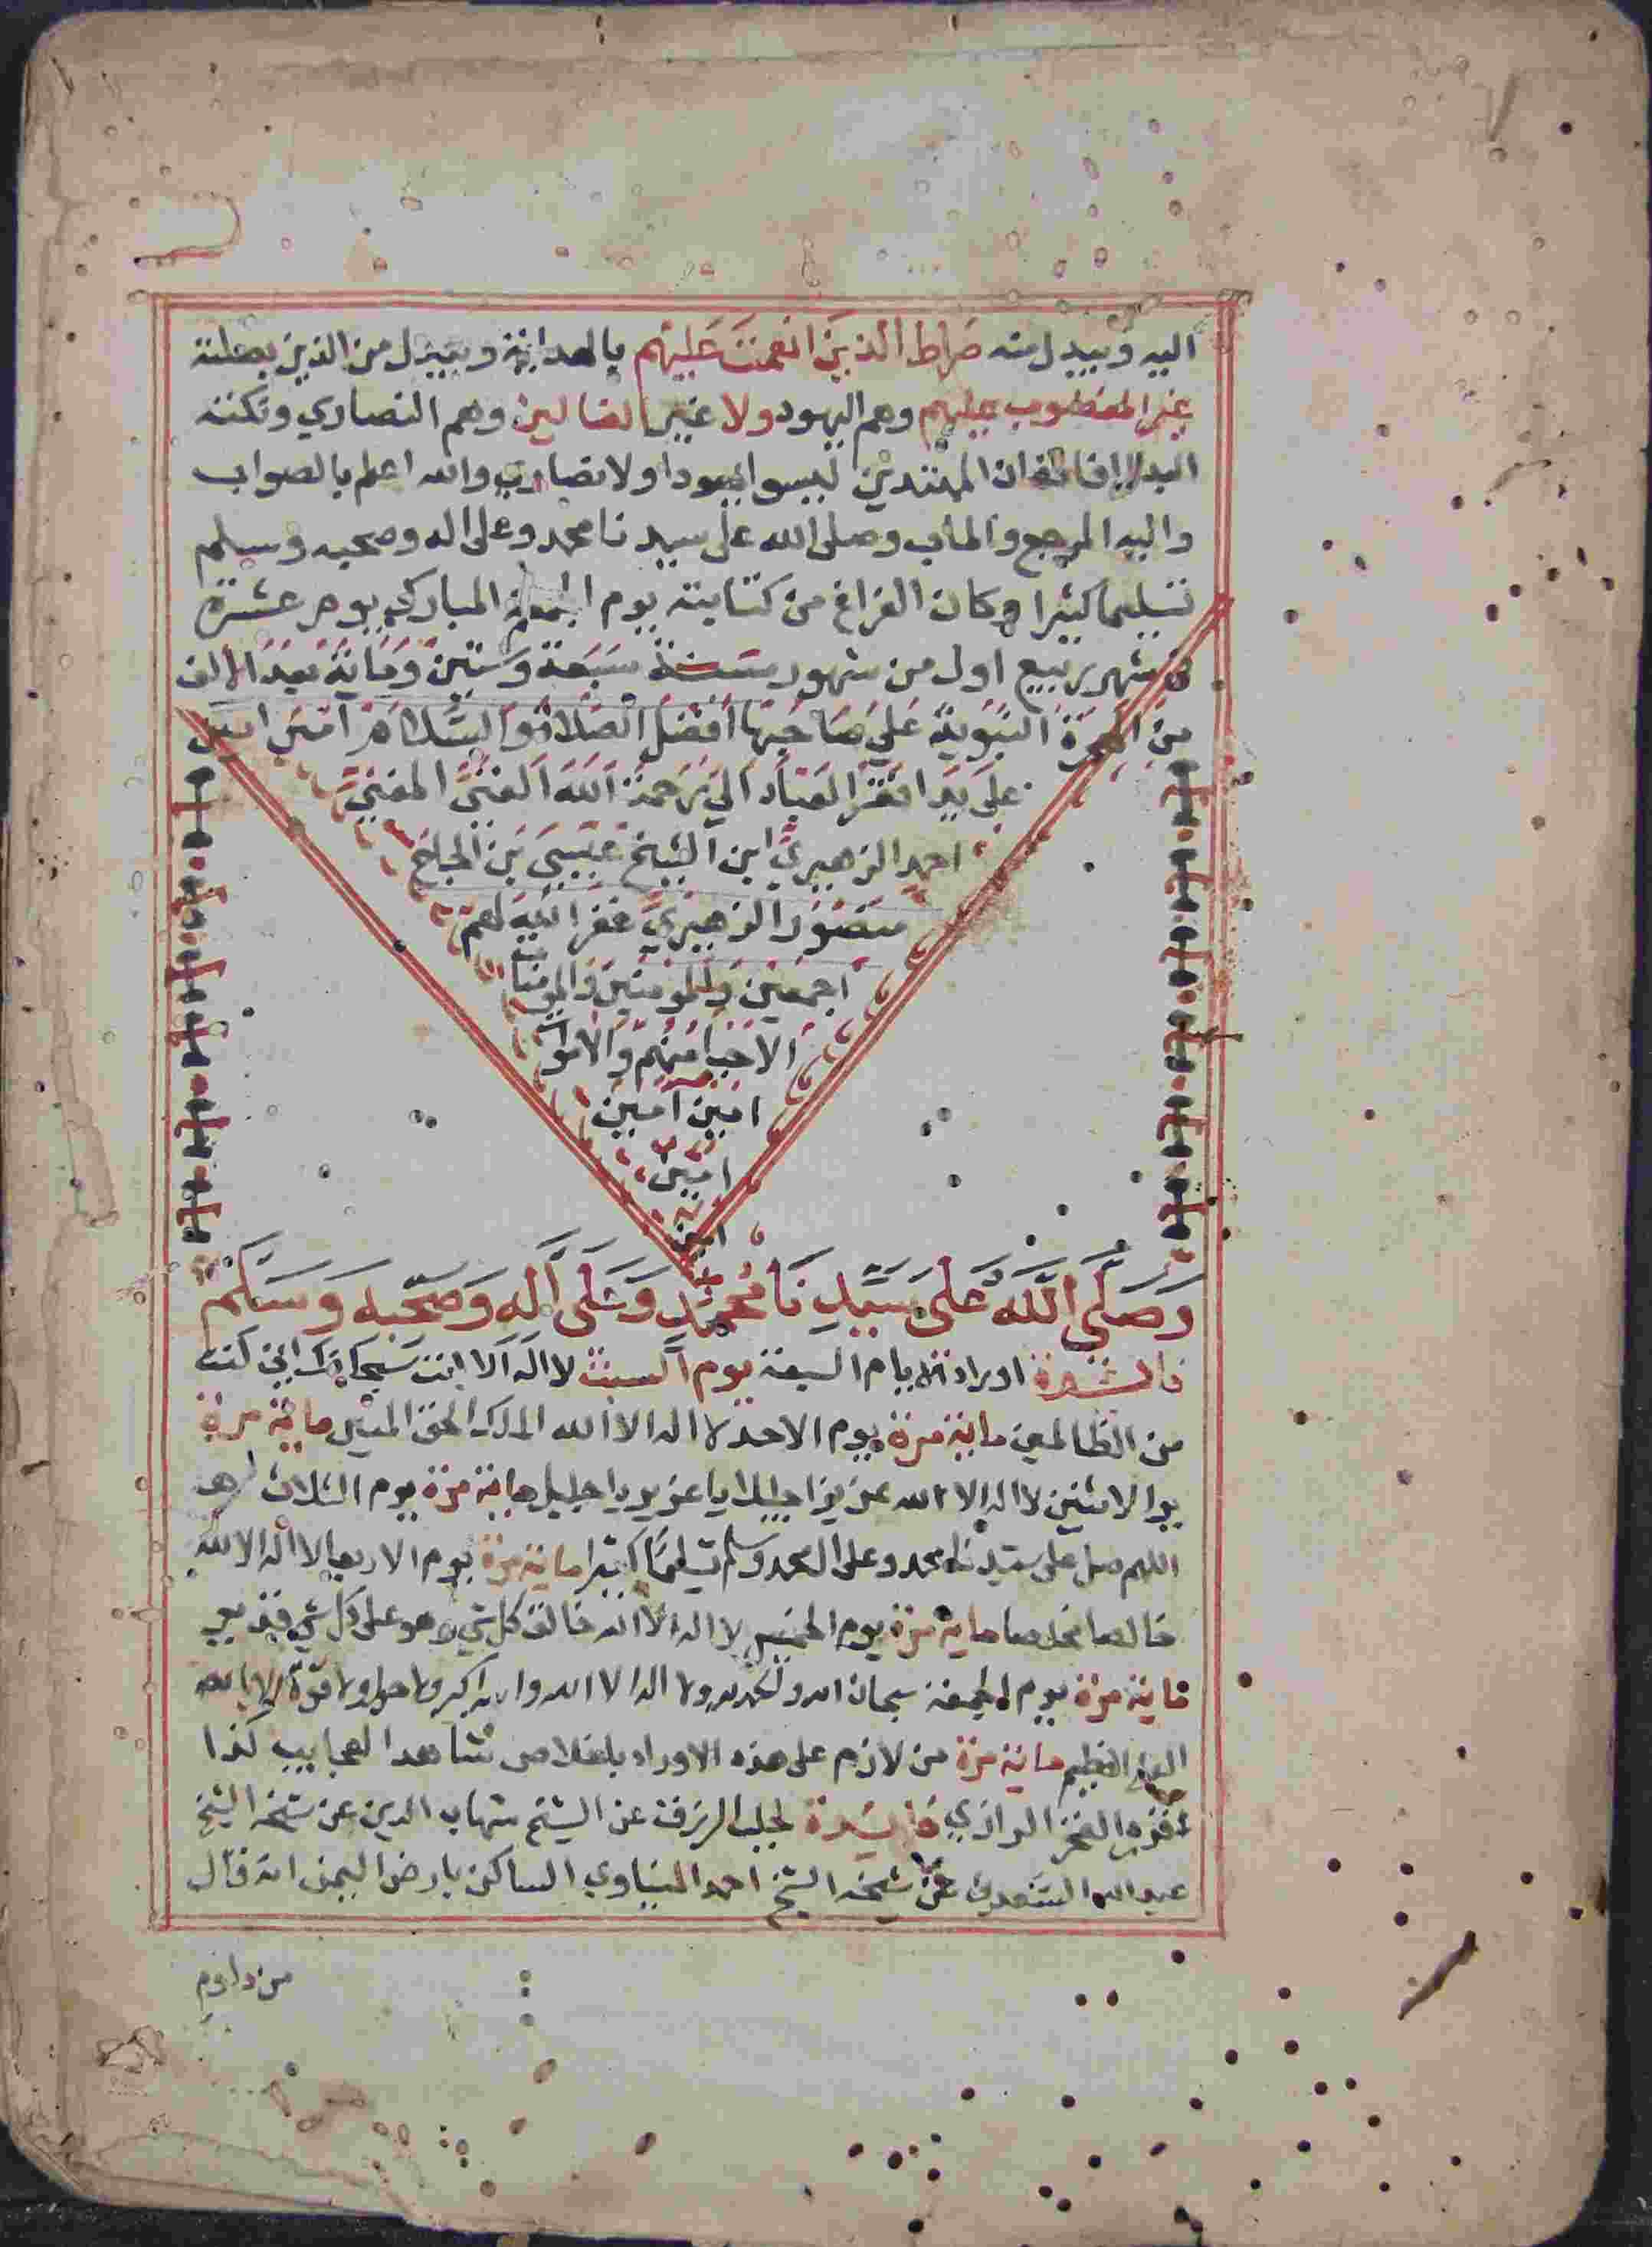 اليه ويبدل منه صراط الذين انعمت عليهم بالهداية ويبدل من الذين بصلته
غير المغضوب عليهم وهم اليهود ولا غير الضالين وهم النصاري ونكتته
البدل افادة ان المهتدين ليسوا يهودا ولا نصارى والله اعلم بالصواب
واليه المرجع والماب وصلى الله على سيدنا محمد وعلى اله وصحبه وسلم
تسليما كثيرا وكان الفراغ من كتابته يوم الجمعة المبارك يوم عشرة
في شهر ربيع اول من شهور سنة سبعة وستين ومايه بعد الالف
من الهجرة النبوية على صاحبها افضل الصلاة والسلام آمين امين
على يد افقر العباد الى رحمة الله الغني المغني
احمد الزهيري ابن الشيخ عيسى بن الحاج
منصور الزهيري غفر الله لهم
اجمعين وللمومنين والمومنات
الاحيا منهم والاموات
امين آمين
امين
امين
وصلى الله على سيدنا محمد وعلى آله وصحبه وسلم
اوراد الايام السبعة يوم السبت لا اله الا انت سبحانك اني كنت
من الظالمين ماية مرة يوم الاحد لا اله الا الله الملك الحق المبين ماية مرة
يوم الاثنين لا اله الا الله عزيزا جليلا يا عزيز يا جليل ماية مرة يوم الثلاث
اللهم صل على سيدنا محمد وعلى ال محمد وسلم تسليما كثيرا ماية مرة يوم الاربعا لا اله الا الله
خالصا مخلصا ماية مرة يوم الخميس لا اله الا الله خالق كل شي وهو على كل شي قدير
ماية مرة يوم الجمعة سبحان الله والحمد لله ولا اله الا الله والله اكبر ولا حول ولا قوة الا بالله
العلي العظيم ماية مرة من لازم على هذه الاوراد باخلاص شاهد العجايب كذا
الفخر الرازي لجلب الرزق عن الشيخ شهاب الدين عن شيخه الشيخ
عبد الله عن شيخه الشيخ احمد الساكن بارض اليمن انه قال
من داوم